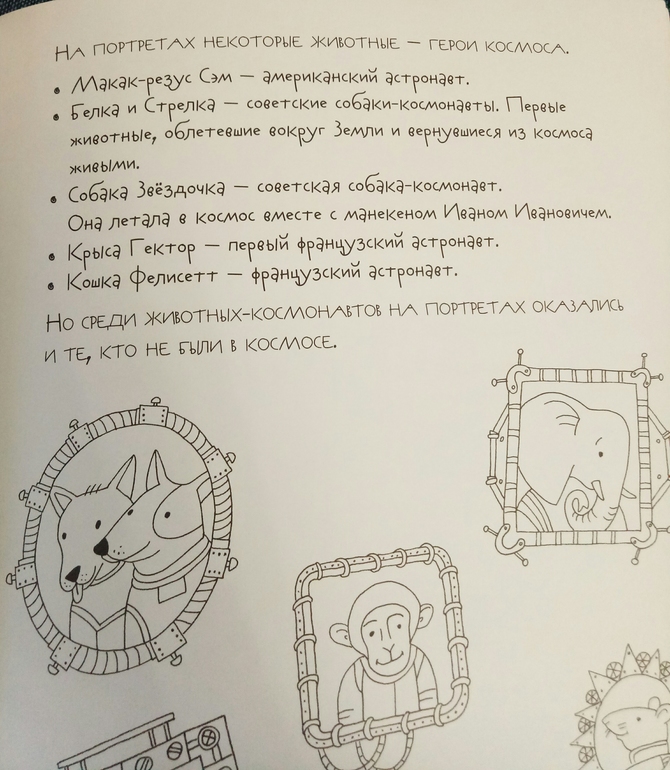 На портретах некоторые животные — герои космоса.
• Макак-резус Сэм — американский астронавт.
• Белка и Стрелка — советские собаки-космонавты. Первые
животные, облетевшие вокруг Земли и вернувшиеся из космоса
живыми.
• Собака Звёздочка — советская собака-космонавт.
Она летала в космос вместе с манекеном Иваном Ивановичем.
• Крыса Гектор — первый французский астронавт.
• Кошка Фелисетт — французский астронавт.
Но среди животных-космонавтов на портретах оказались
и те, кто не были в космосе.